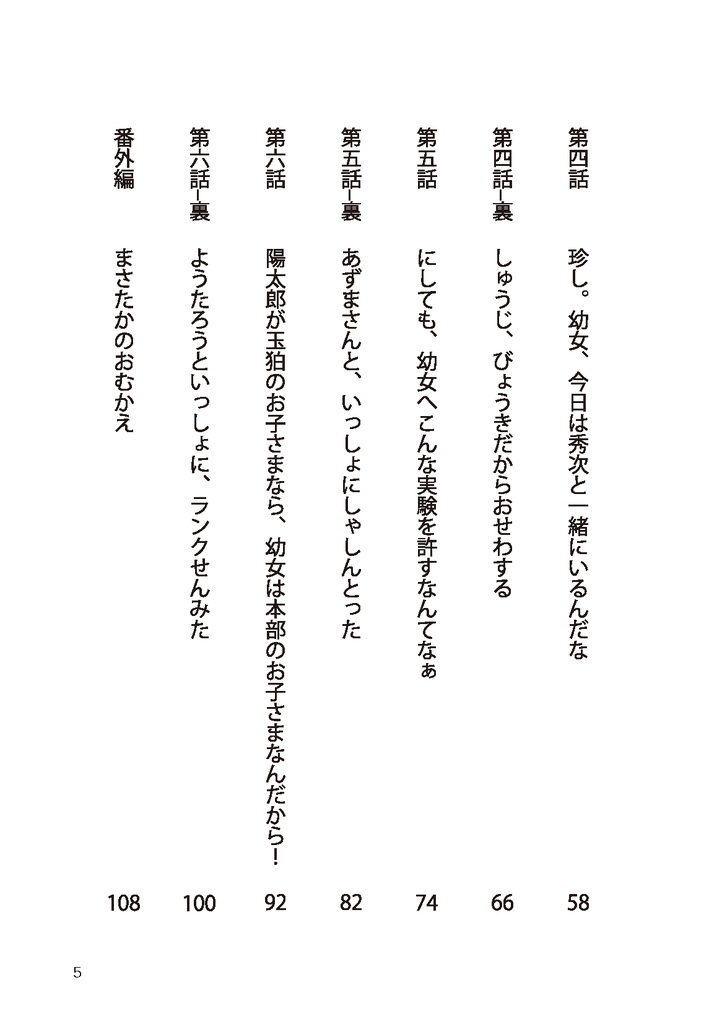 第四話　珍し。幼女、今日は秀次と一緒にいるんだな　58
第四話−裏　しゅうじ、びょうきだからおせわする　66
第五話　にしても、幼女へこんな実験を許すなんてなぁ　74
第五話−裏　あずまさんと、いっしょにしゃしんとった　82
第六話　陽太郎が玉狛のお子さまなら、幼女は本部のお子さまなんだから！　92
第六話−裏　ようたろうといっしょに、ランクせんみた　100
番外編　まさたかのおむかえ　108
5